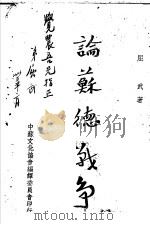 屈武著
論蘇德戰爭
覺農吾兄指正
弟屈武
中蘇文化協會編譯委員會印行